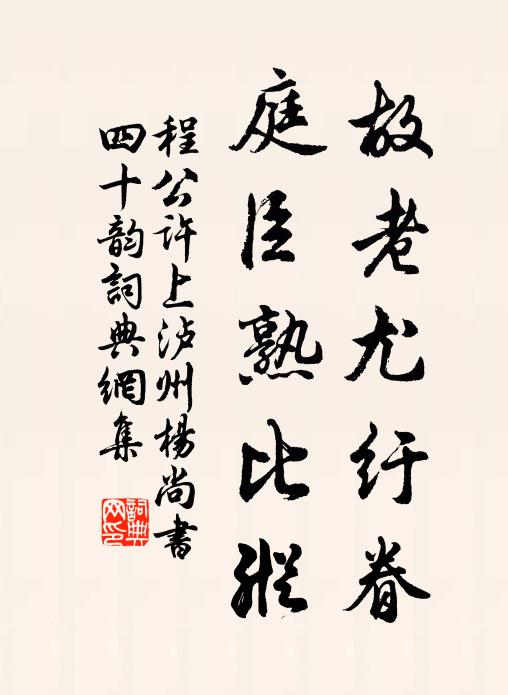 故老尤纡眷
庭臣熟比踪
程公许上泸州杨尚书
四十韵詞典網集
詞典网印